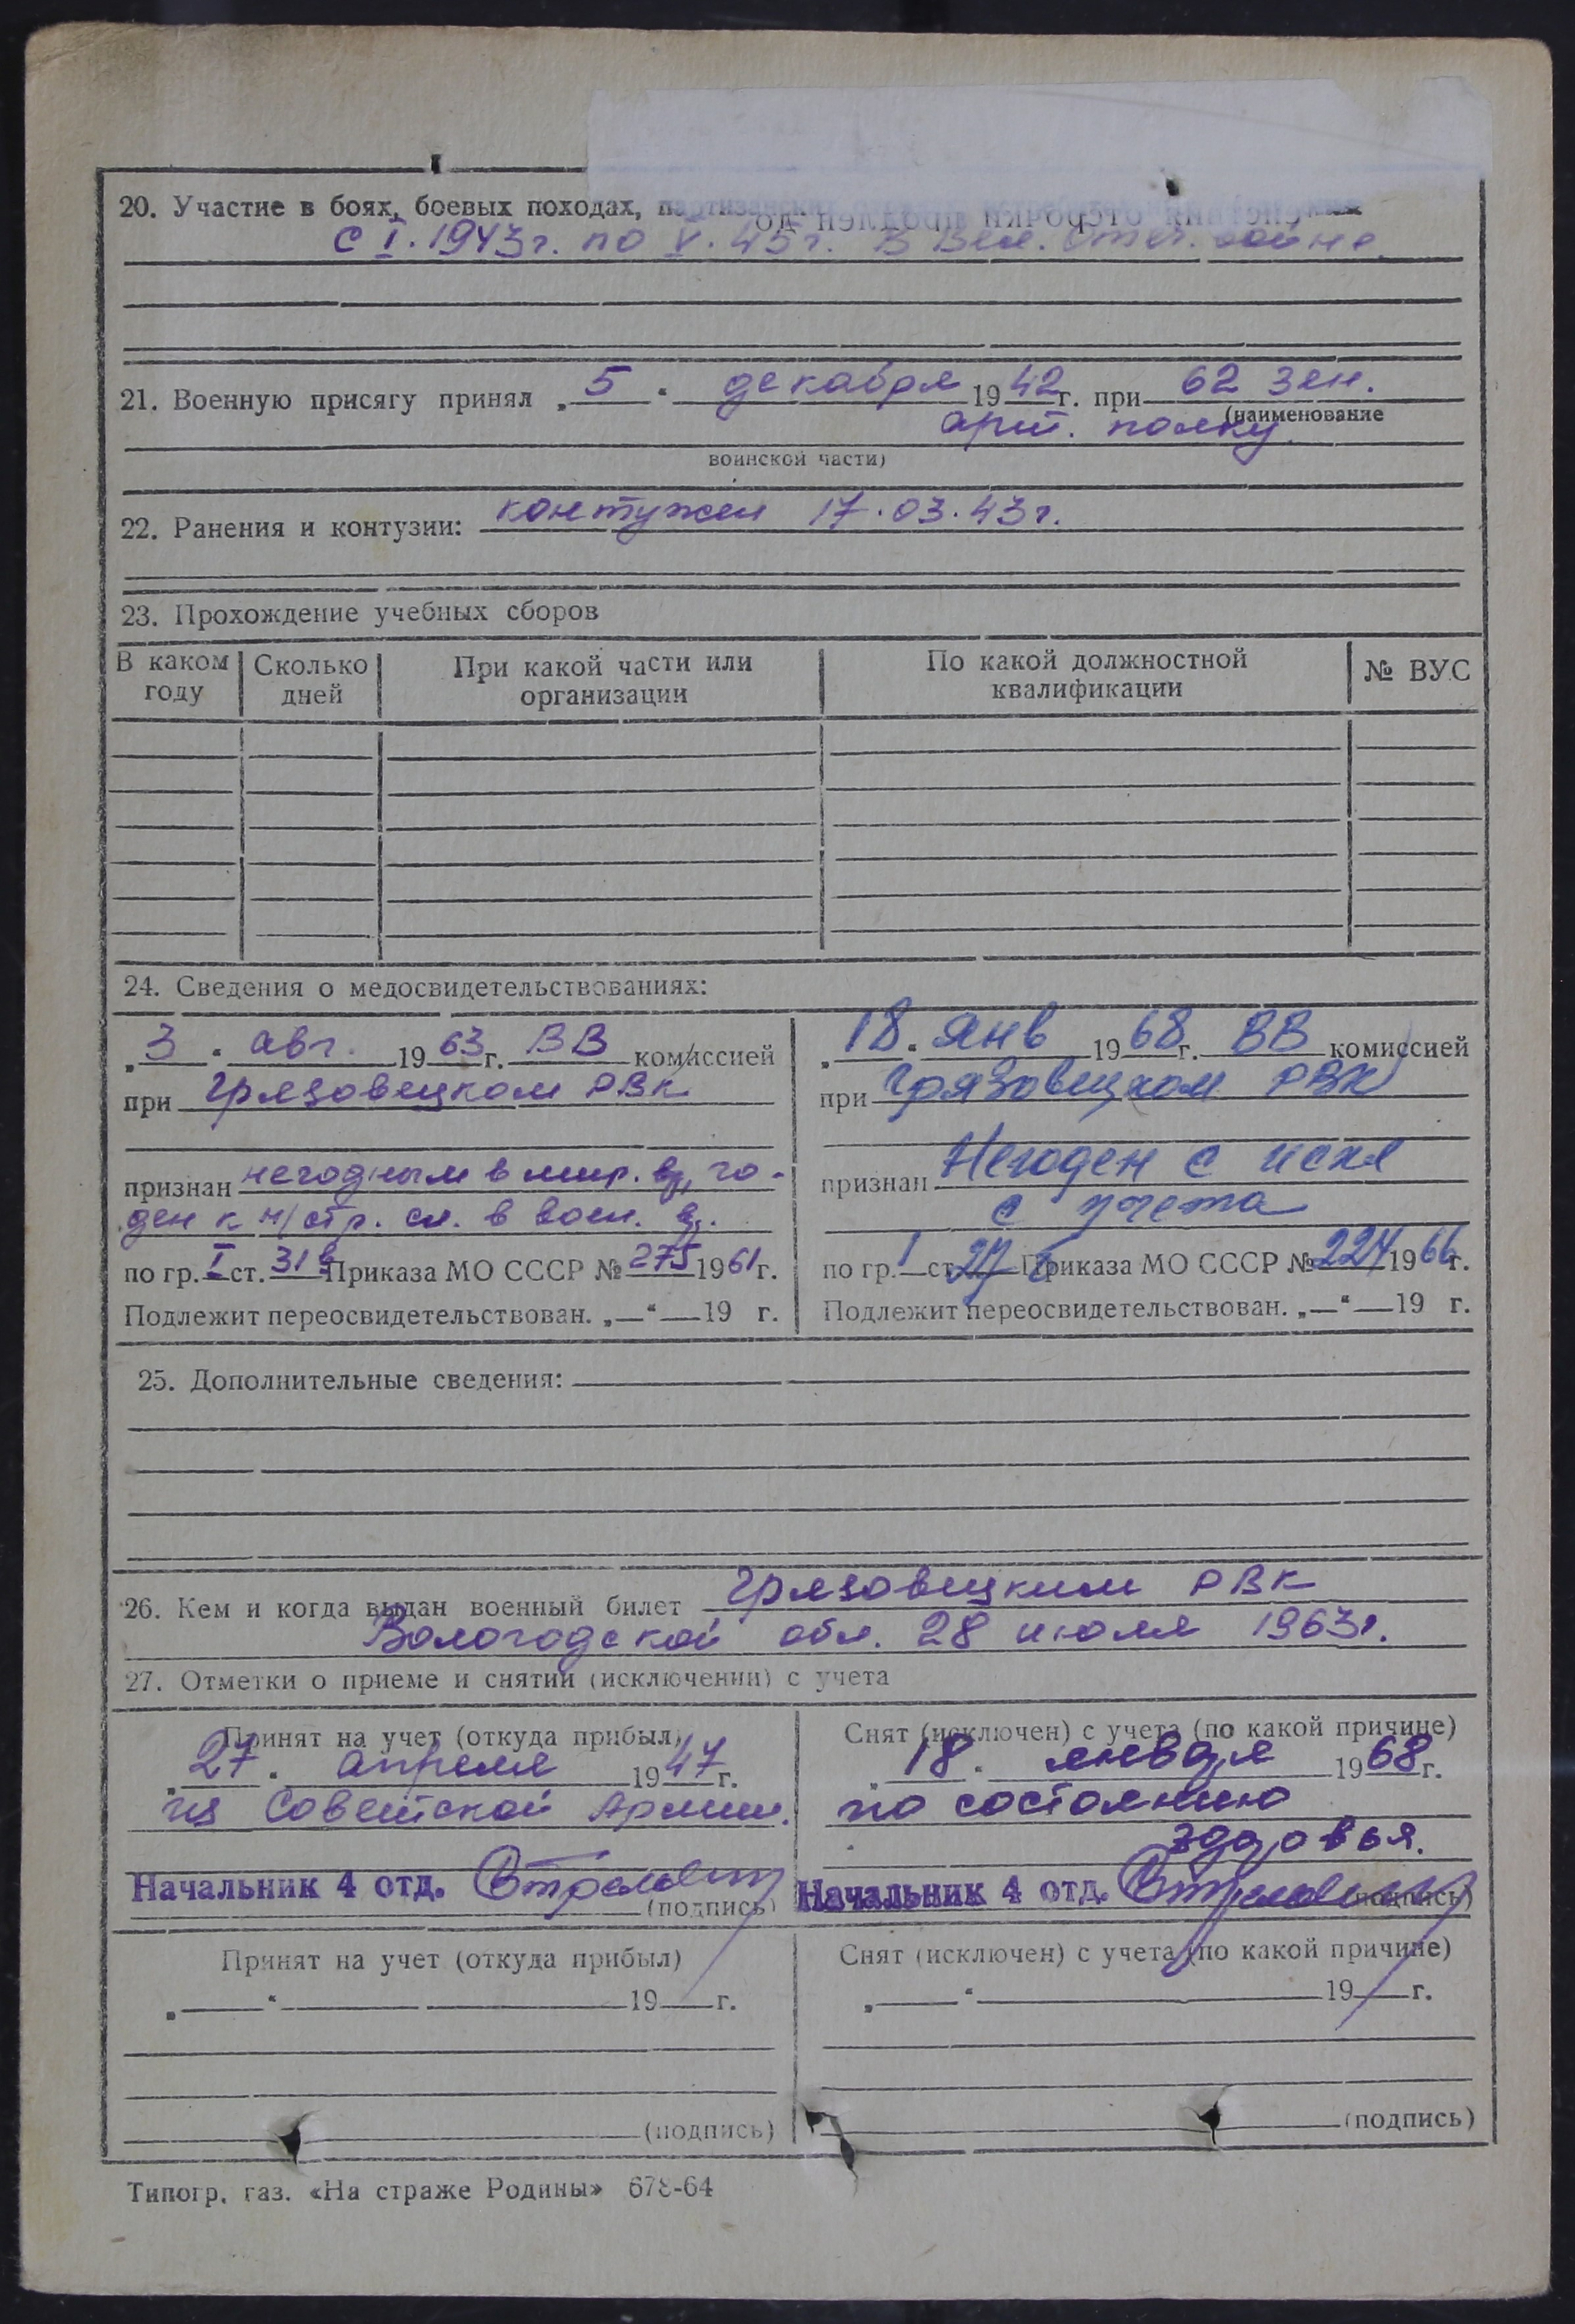 20. Участие в боях, боевых походах, партизанских
с I. 1943г. по V. 45г. в Вел. Отеч. войне
21. Военную присягу принял „5“ декабря 1942г. при 62 зен.
(наименование
арт. полку.
воинской части)
22. Ранения и контузии: контужен 17.03.43г.
23. Прохождение учебных сборов
В каком году Сколько дней При какой части или организации По какой должностной квалификации № ВУС
24. Сведения о медосвидетельствованиях:
„3“ авг. 1963г. ВВ комиссией
при Грязовецком РВК
признан негодным в мир. вр, го-
ден к н/стр. сл. в воен. вр.
по гр. I ст. 31в Приказа МО СССР № 275 1961г.
Подлежит переосвидетельствован. „—“—19 г.
„18“ янв 1968г. ВВ комиссией
при Грязовецком РВК
признан Негоден с искл
с учета
по гр. 1 ст. 27 б Приказа МО СССР № 224 1966г.
Подлежит переосвидетельствован. „—“—19 г.
25. Дополнительные сведения:
26. Кем и когда выдан военный билет Грязовецким РВК
Вологодской обл. 28 июля 1963г.
27. Отметки о приеме и снятии (исключении) с учета
Принят на учет (откуда прибыл)
„27“ апреля 1947г.
из Советской Армии.
Начальник 4 отд.
(подпись)
Снят (исключен) с учета (по какой причине)
„18“ января 1968г.
по состоянию
здоровья.
Начальник 4 отд.
(подпись)
Принят на учет (откуда прибыл)
„ “ 19 г.
(подпись)
Снят (исключен) с учета (по какой причине)
„ “ 19 г.
(подпись)
Типогр. газ. «На страже Родины» 678-64